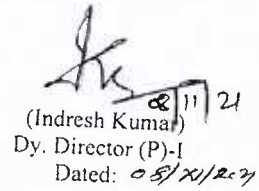 08/11/21
(Indresh Kumar)
Dy. Director (P)-I
Dated: 08/XI/2021